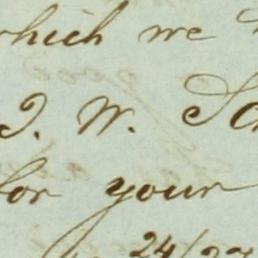 which we
J. W.
for your
24/